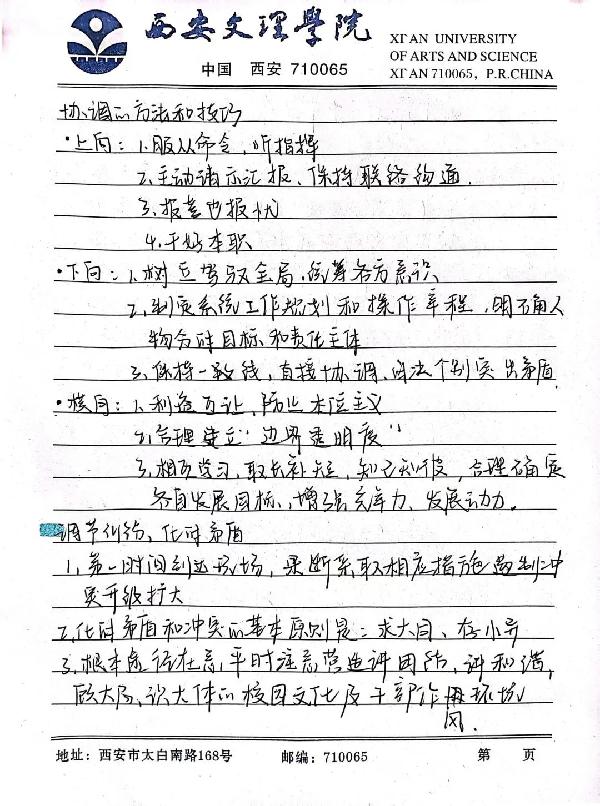 西安文理学院
中国 西安 710065
XI'AN UNIVERSITY
OF ARTS AND SCIENCE
XI'AN 710065, P.R.CHINA
协调的方法和技巧
·上向：1.服从命令，听指挥
2.主动请示汇报、保持联络沟通.
3.报喜也报忧
4.干好本职
·下向：1.树立驾驭全局，统筹各方意识
2.制定系统工作规划和操作章程，明确人
物合时目标和责任主体
3.保持一致线，直接协调、个别突出矛盾
·横向：1.利益互让，防止本位主义
2.合理建立"边界透明度"
3.相互学习，取长补短，知己知彼，合理确定
各自发展目标，增强竞争力、发展动力。
调节纠纷，化解矛盾
1.第一时间到达现场，果断采取相应措施遏制冲
突升级扩大
2.化解矛盾和冲突的基本原则是：求大同、存小异
3.根本途径在于平时注意营造讲团结，讲和谐，
顾大局、识大体的校园文化及干部作风环境
地址：西安市太白南路168号 邮编：710065 第 页